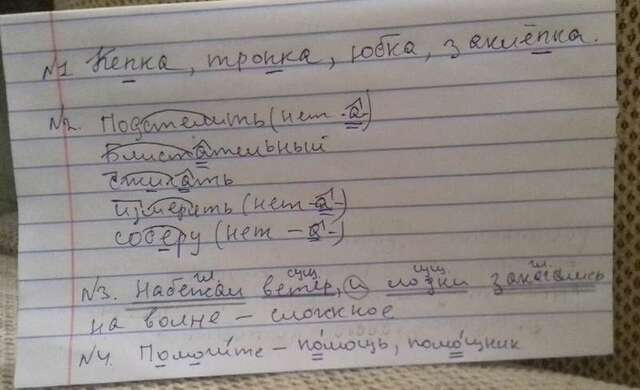 №1 Кепка, тропка, юбка, заклёпка.
№2. Подстелить (нет -а-)
Блистательный
стихать
измерить (нет -а-)
соберу (нет -а-)
гл. сущ. сущ. гл.
№3. Набежал ветер, и лодки закачались
на волне - сложное
№4. Помогите - помощь, помощник